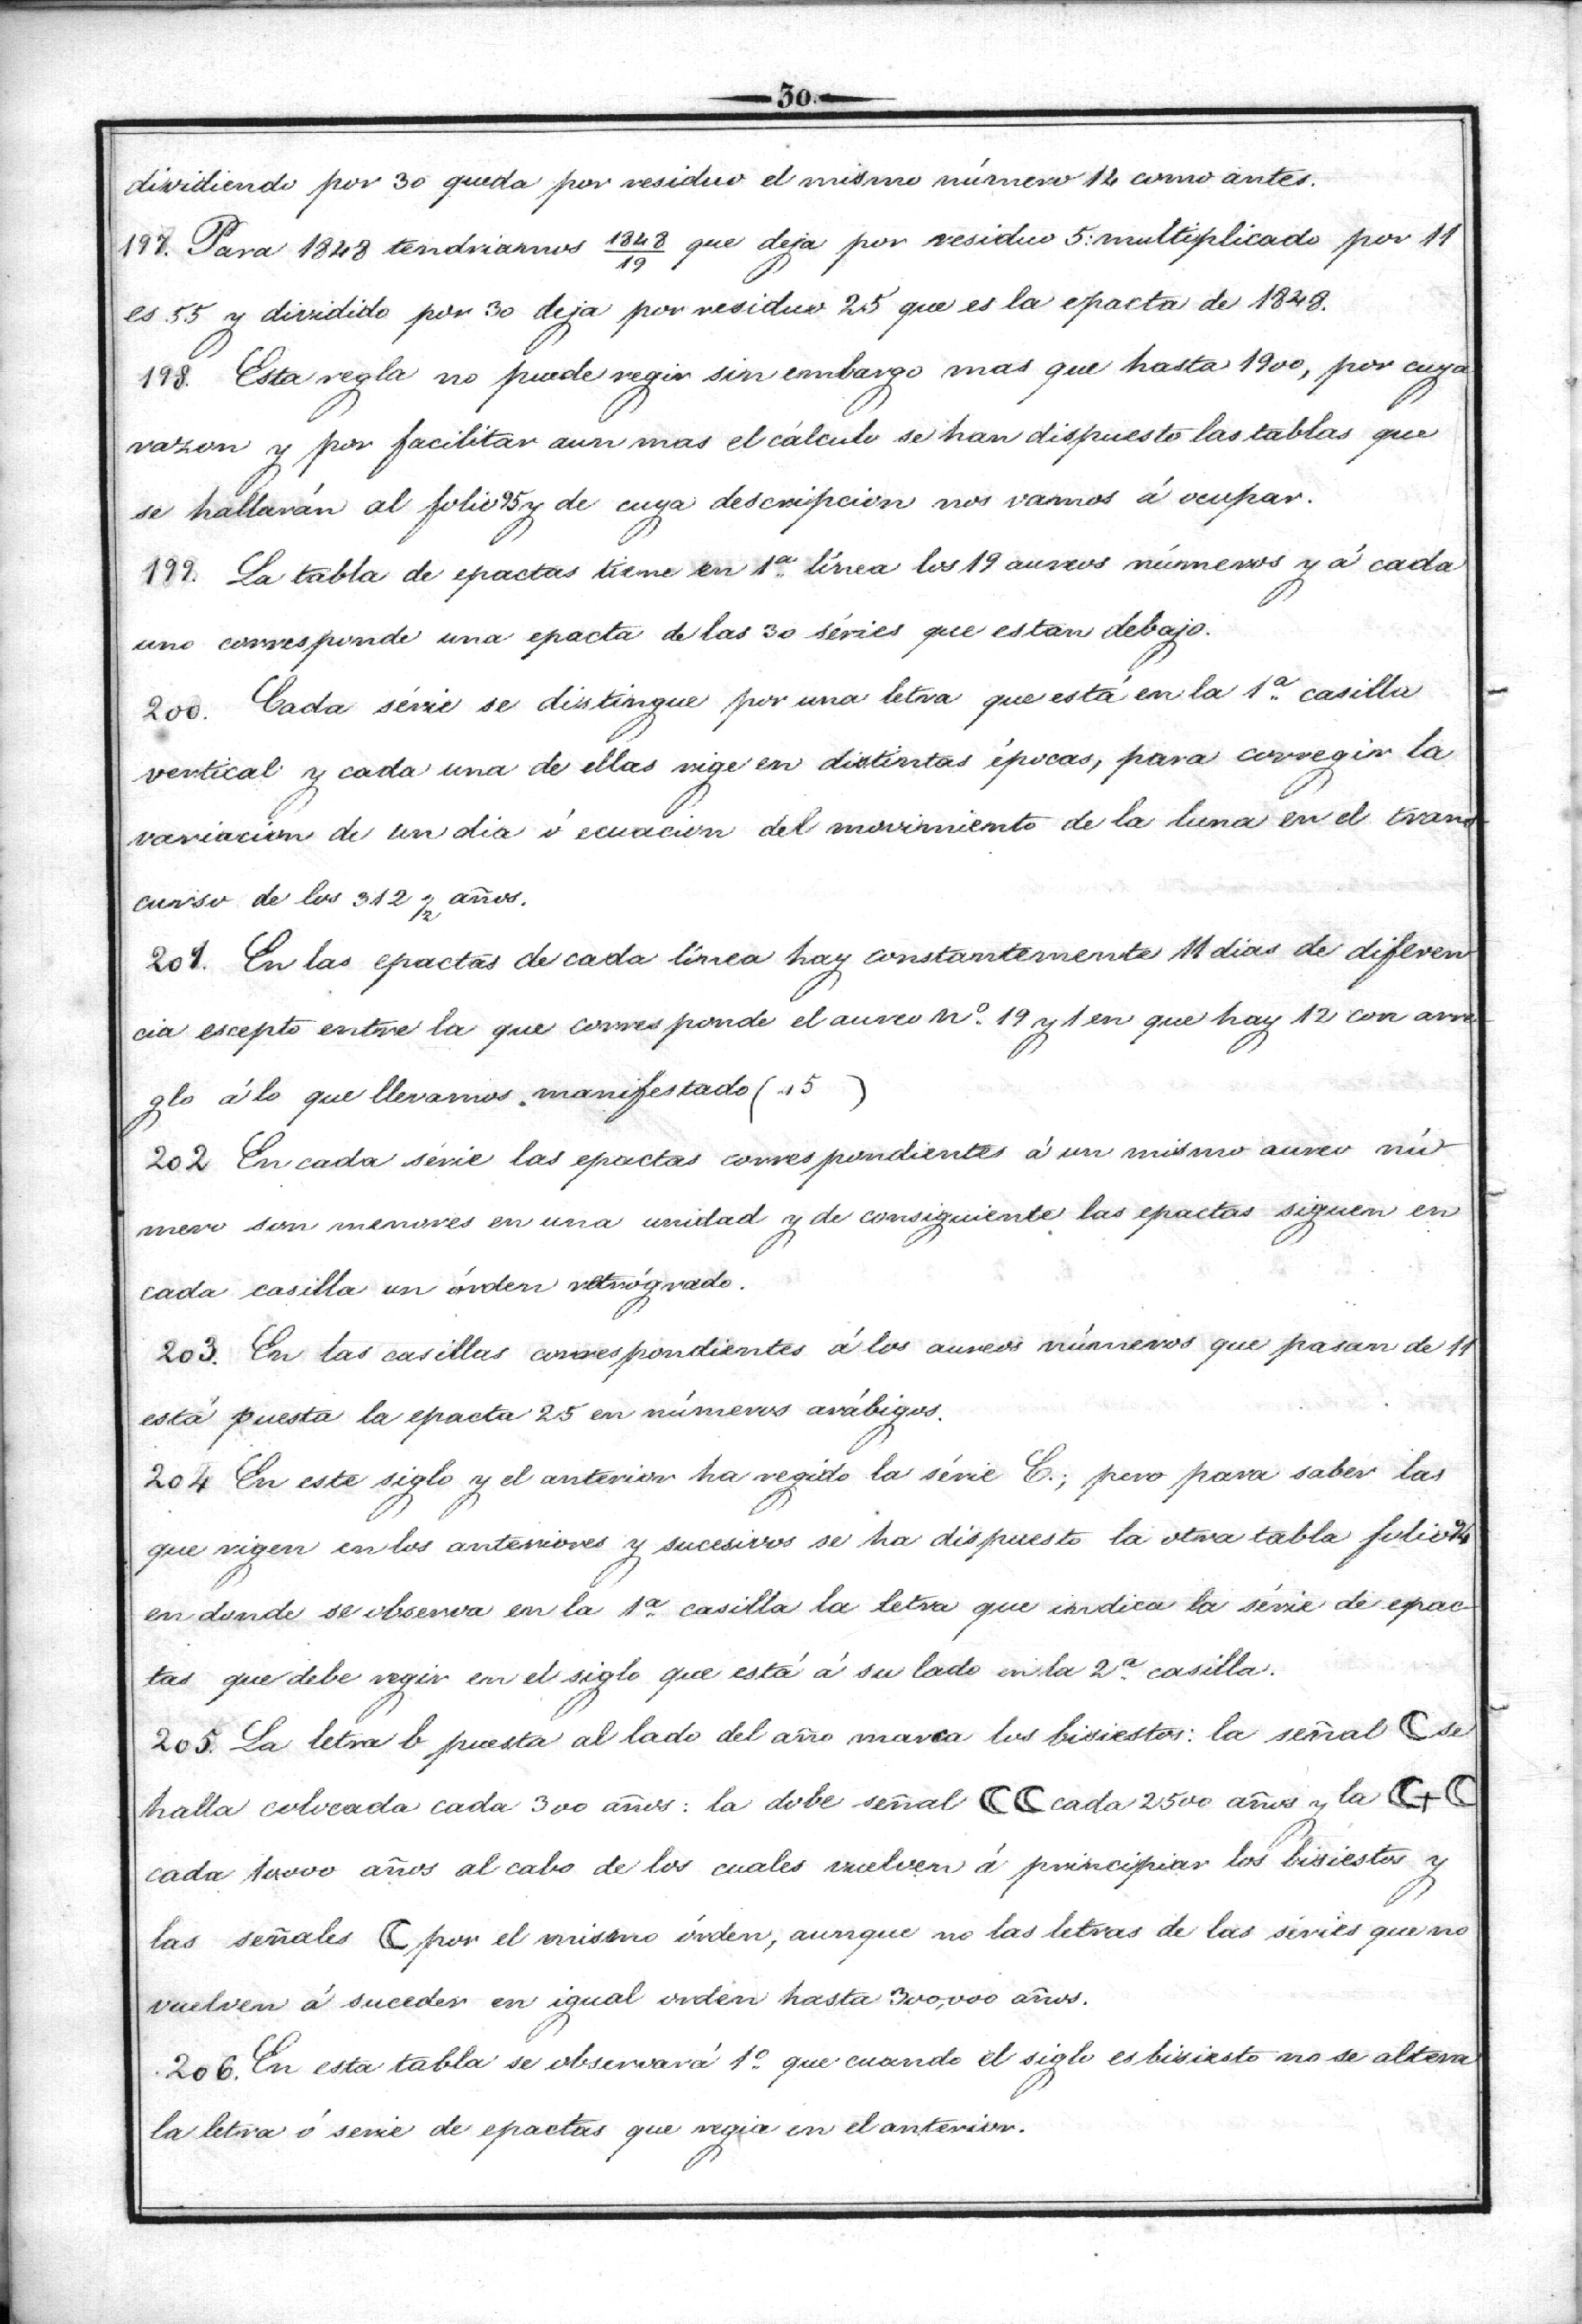 30.
dividiendo por 30 queda por residuo el mismo número 14 como antes.
197. Para 1848 tendriamos 1848/19 que deja por residuo 5: multiplicado por 11
es 55 y dividido por 30 deja por residuo 25 que es la epacta de 1848.
198. Esta regla no puede regir sin embargo mas que hasta 1900, por cuya
razon y por facilitar aun mas el cálculo se han dispuesto las tablas que
se hallarán al folio 95 y de cuya descripcion nos vamos á ocupar.
199. La tabla de epactas tiene en 1ª línea los 19 aureos números y á cada
uno corresponde una epacta de las 30 séries que estan debajo.
200. Cada série se distingue por una letra que está en la 1ª casilla
vertical y cada una de ellas rige en distintas épocas, para corregir la
variacion de un dia ó ecuacion del movimiento de la luna en el trans
curso de los 312 1/2 años.
201. En las epactas de cada línea hay constantemente 11 dias de diferen
cia escepto entre la que corresponde el aureo nº 19 y 1 en que hay 12 con arre
glo á lo que llevamos manifestado ( 15 )
202 En cada série las epactas correspondientes á un mismo aureo nú
mero son menores en una unidad y de consiguiente las epactas siguen en
cada casilla un órden retrógrado.
203. En las casillas correspondientes á los aureos números que pasan de 11
está puesta la epacta 25 en números arábigos.
204 En este siglo y el anterior ha regido la série C.; pero para saber las
que rigen en los anteriores y sucesivos se ha dispuesto la otra tabla folio
en donde se observa en la 1ª casilla la letra que indica la série de epac
tas que debe regir en el siglo que está á su lado en la 2ª casilla.
205. La letra b puesta al lado del año marca los bisiestos: la señal ☾ se
halla colocada cada 300 años: la dobe señal ☾☾ cada 2500 años y la ☾+☾
cada 10000 años al cabo de los cuales vuelven á principiar los bisiestos y
las señales ☾ por el mismo órden, aunque no las letras de las séries que no
vuelven á suceder en igual orden hasta 300,000 años.
206. En esta tabla se observará 1º que cuando el siglo es bisiesto no se altera
la letra ó serie de epactas que regia en el anterior.